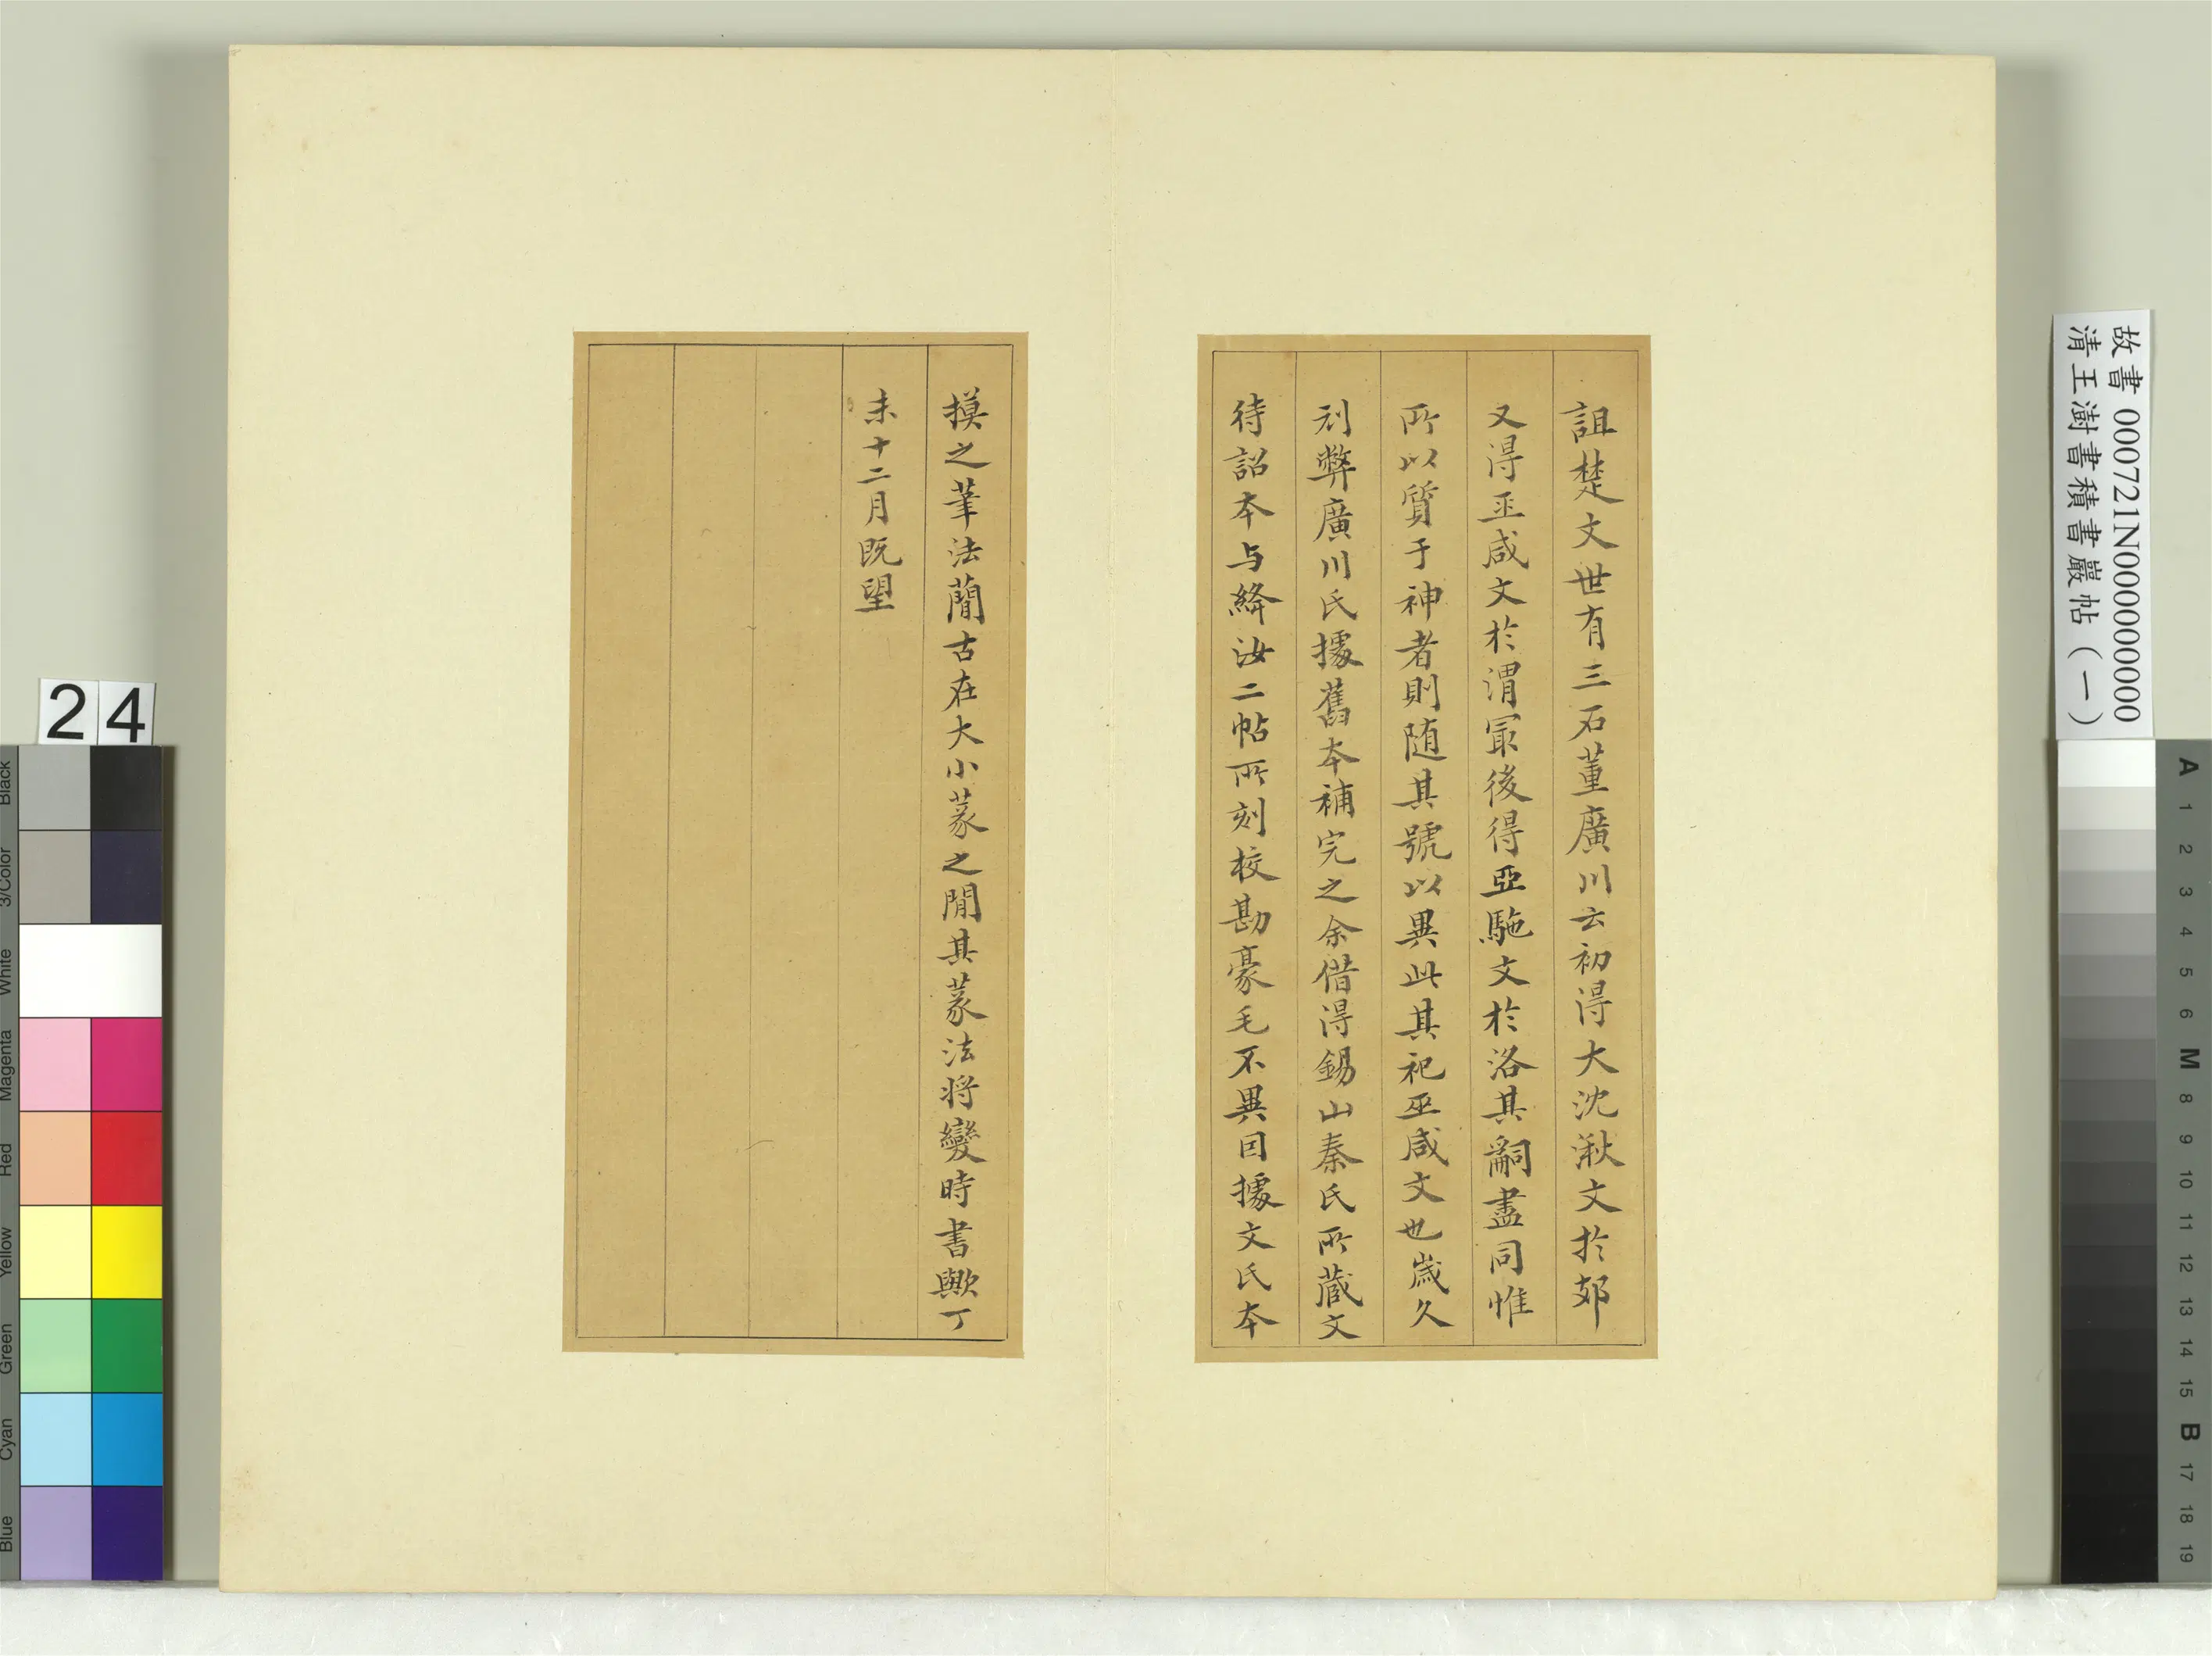 詛楚文世有三石董廣川云初得大沈湫文於郊
又得巫咸文於渭冣後得亞駞文於洛其嗣盡同惟
所以質于神者則随其號以異此其祀巫咸文也歲久
刓弊廣川氏據舊本補完之余借得錫山秦氏所藏文
待詔本与絳汝二帖所刻校勘豪毛不異因據文氏本
摸之筆法簡古在大小篆之閒其篆法将變時書歟丁
未十二月既望
故書 000721N000000000
清王澍書積書巖帖（一）
24
Black
3/Color
White
Magenta
Red
Yellow
Green
Cyan
Blue
A
1
2
3
4
5
6
M
8
9
10
11
12
13
14
15
B
17
18
19